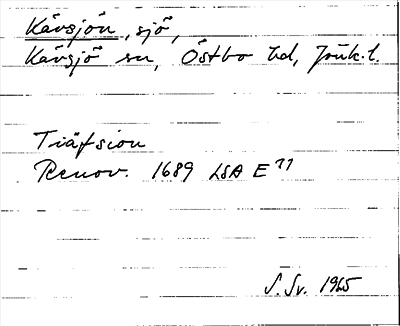 Kävsjön, sjö,
Kävsjö sn, Östbo hd, Jönk.l.
Tiäfsion
Renov. 1689 LSA E 11
S. Sv. 1965